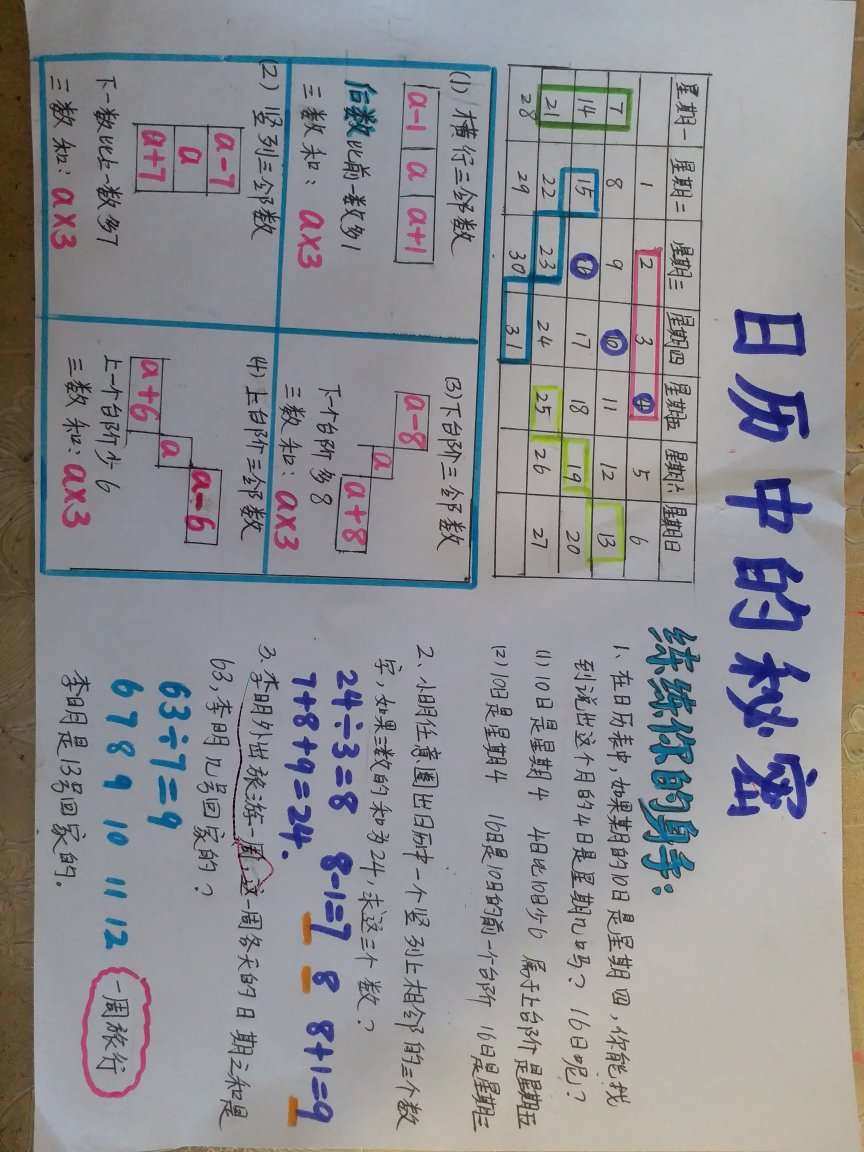 日历中的秘密
星期一 星期二 星期三 星期四 星期五 星期六 星期日
1 2 3 4 5 6
7 8 9 10 11 12 13
14 15 16 17 18 19 20
21 22 23 24 25 26 27
28 29 30 31
(1) 横行三邻数
a-1 a a+1
后数比前一数多1
三数和: a×3
(2) 竖列三邻数
a-7
a
a+7
下一数比上一数多7
三数和: a×3
(3) 下台阶三邻数
a-8
a
a+8
下一个台阶多8
三数和: a×3
(4) 上台阶三邻数
a-6
a
a+6
上一个台阶少6
三数和: a×3
练练你的身手:
1、在日历表中,如果某期的10日是星期四,你能找
到说出这个月的4日是星期几吗?16日呢?
(1) 10日是星期4 4日比10日少6 属于上台阶 是星期五
(2) 10日是星期4 16日是10日的前一个台阶 16日是星期三
2、小明任意圈出日历中一个竖列上相邻的三个数
字,如果三数的和为24,求这三个数?
24÷3=8 8-1=7 8 8+1=9
7+8+9=24.
3、李明外出旅游一周,这一周各天的日期之和是
63,李明几号回家的?
63÷7=9
6 7 8 9 10 11 12 一周旅行
李明是13号回家的.